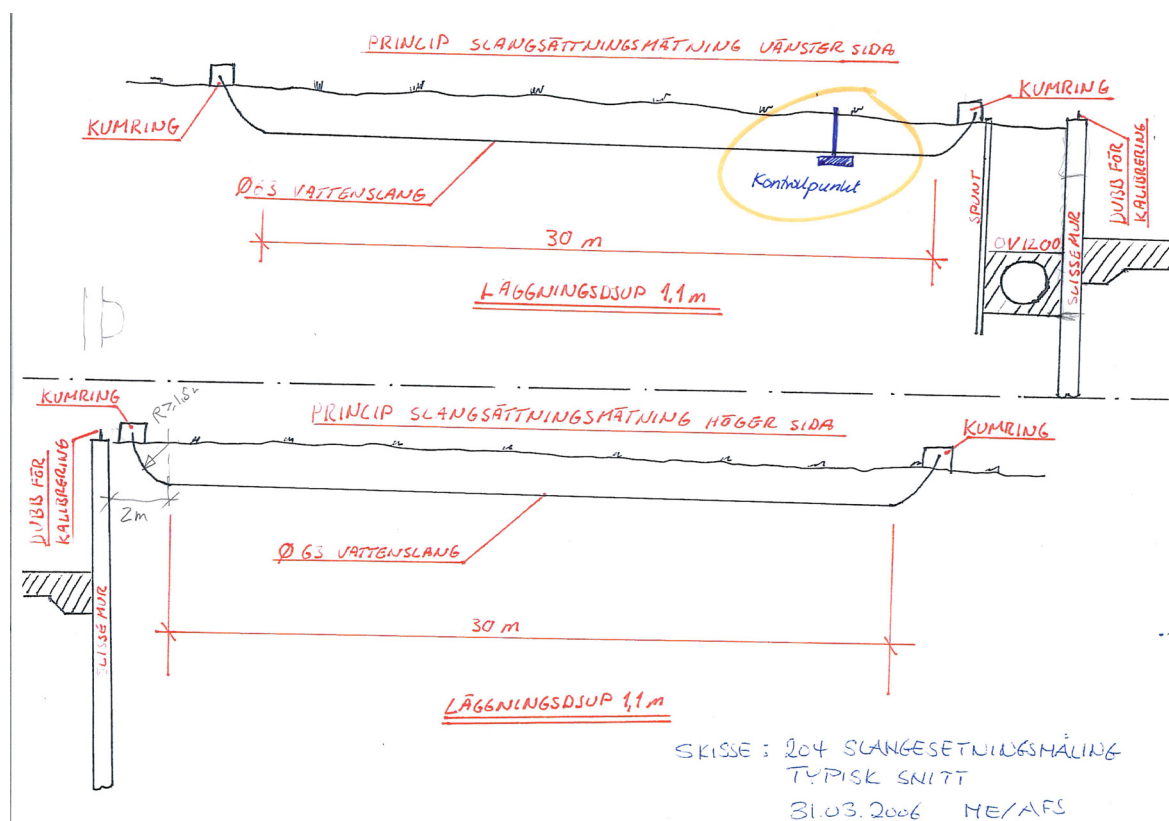 PRINCIP SLANGSÄTTNINGSMÄTNING VÄNSTER SIDA
KUMRING
KUMRING
Ø63 VATTENSLANG
Kontrolpunkt
DUBB FÖR
KALIBRERING
SPUNT
30 m
OV1200
SLISSEMUR
LÄGGNINGSDJUP 1,1m
KUMRING
R≥1,5m
PRINCIP SLANGSÄTTNINGSMÄTNING HÖGER SIDA
KUMRING
DUBB FÖR
KALIBRERING
2m
Ø 63 VATTENSLANG
SLISSEMUR
30 m
LÄGGNINGSDJUP 1,1m
SKISSE: 204 SLANGESETNINGSMÅLING
TYPISK SNITT
31.03.2006 ME/AFS